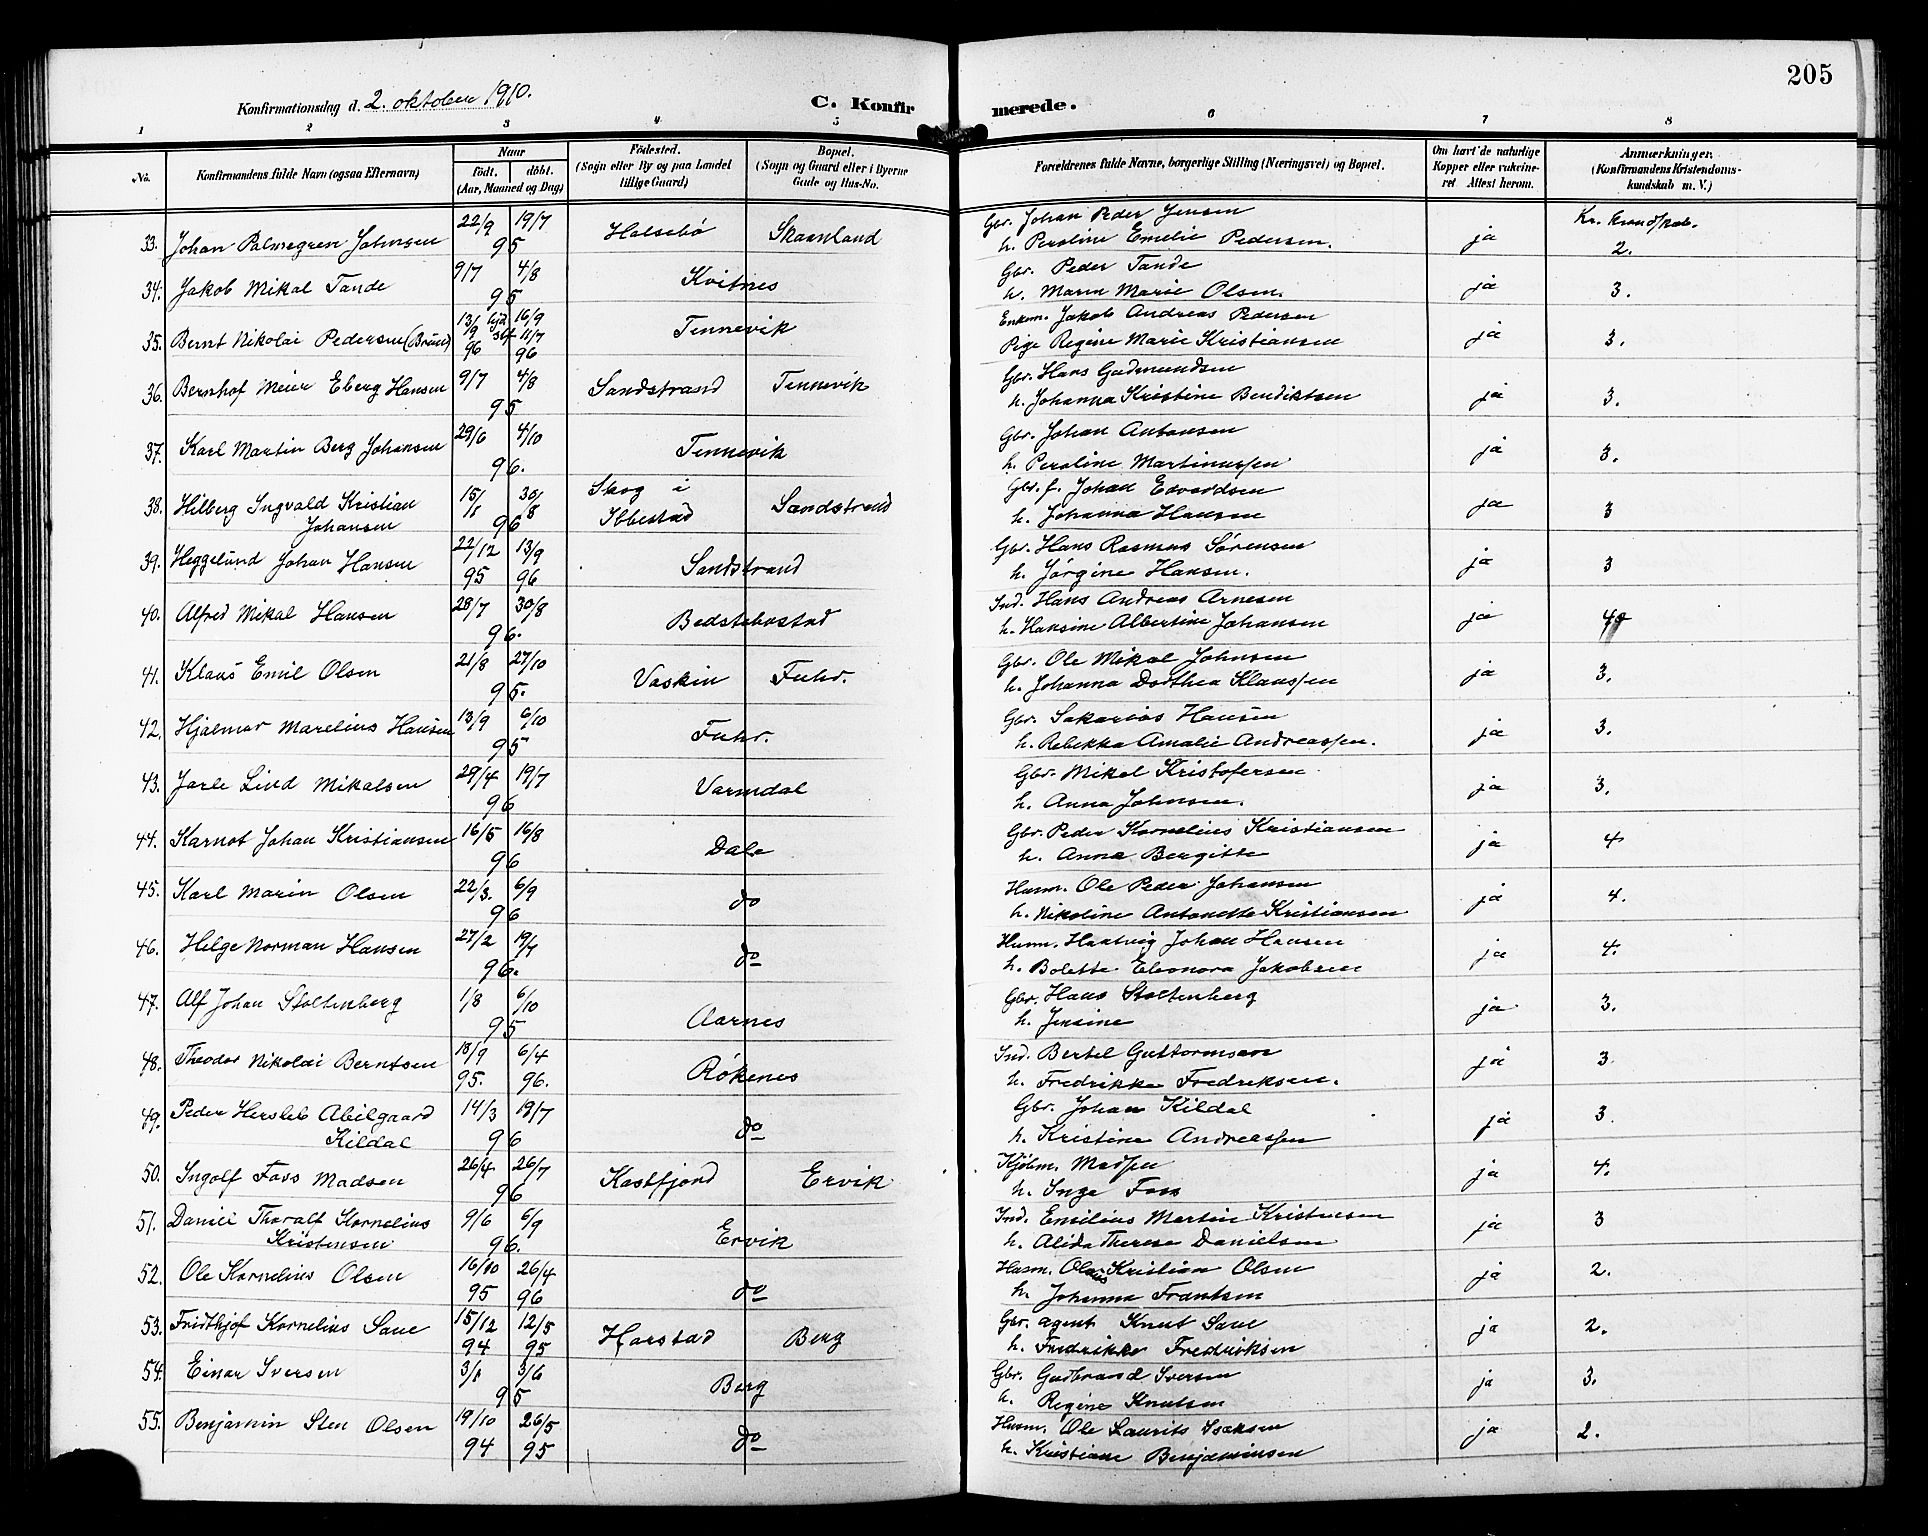 205
Konfirmationsdag d. 2. oktober 1910.
C. Konfirmerede.
1 2 3 4 5 6 7 8
No. | Konfirmandens fulde Navn (ogsaa Efternavn) | Naar født. døbt. (Aar, Maaned og Dag) | Fødested. (Sogn eller By og paa Landet tillige Gaard) | Bopæl. (Sogn og Gaard eller i Byerne Gade og Hus-No. | Forældrenes fulde Navne, borgerlige Stilling (Næringsvei) og Bopæl. | Om havt de naturlige Kopper eller vakcineret Attest herom. | Anmærkninger. (Konfirmandens Kristendomskundskab m. V.)
33. Johan Palmegren Johnsen 22/9 19/7 95 Halsebø Skaanland Gbr. Johan Peder Jensen h. Peroline Emelie Pedersen. ja Kr. kundskab. 2.
34. Jakob Mikal Tande 9/7 4/8 95 Kvitnes Gbr. Peder Tande h. Maren Marie Olsen. ja 3.
35. Bernt Nikolai Pedersen (Bruun) 13/9 96 16/9 11/7 96 Tennevik Enkem. Jakob Andreas Pedersen Pige Regine Marie Kristiansen ja 3.
36. Bernhof Meier Eberg Hansen 9/7 4/8 95 Sandstrand Tennevik Gbr. Hans Gudmundsen h. Johanna Kristine Bendiktsen ja 3.
37. Karl Martin Berg Johansen 29/6 4/10 96. Tennevik Gbr. Johan Antonsen h. Peroline Martinussen ja 3.
38. Hilberg Ingvald Kristian Johansen 15/1 30/8 96 Skog i Ibbestad Sandstrand Gbr. f. Johan Edvardsen h. Johanna Hansen ja 3
39. Heggelund Johan Hansen 22/12 95 13/9 96 Sandstrand Gbr. Hans Rasmus Sørensen h. Jørgine Hansen. ja 3
40. Alfred Mikal Hansen 28/7 30/8 96. Bedstebostad Ind. Hans Andreas Arnesen h. Hansine Albertine Johansen ja 4
41. Klaus Emil Olsen 21/8 27/10 95. Vaskin Fuhr. Gbr. Ole Mikal Johnsen h. Johanna Dorthea Klaussen ja 3.
42. Hjalmar Marelius Hansen 13/9 6/10 95 Fuhr. Gbr. Sakarias Hansen h. Rebekka Amalie Andreassen. ja 3.
43. Jarle Lind Mikalsen 29/4 19/7 96 Varmdal Gbr. Mikal Kristofersen h. Anna Johnsen. ja 3.
44. Karnot Johan Kristiansen 16/5 16/8 96 Dale Gbr. Peder Kornelius Kristiansen h. Anna Bergitte ja 4
45. Karl Marin Olsen 22/3. 6/9 96 do Husm. Ole Peder Johansen h. Nikoline Antonette Kristiansen ja 4.
46. Helge Norman Hansen 27/2 19/7 96. do Husm. Hartvig Johan Hansen h. Bolette Eleonora Jakobsen ja 4.
47. Alf Johan Stoltenberg 1/8 6/10 95 Aarnes Gbr. Hans Stoltenberg h. Jensine ja 3.
48. Theodor Nikolai Berntsen 18/9 95. 6/4 96. Røkenes Ind. Bertel Guttormsen h. Fredrikke Fredriksen. ja 3.
49. Peder Hersleb Abilgaard Kildal 14/3 19/7 96 do Gbr. Johan Kildal h. Kristine Andreassen ja 3.
50. Ingolf Foss Madsen 26/4 26/7 96 Kastfjord Ervik Kjøbm. Madsen h. Inga Foss ja 4.
51. Daniel Thoralf Kornelius Kristensen 9/6 6/9 96. Ervik Ind. Emilius Martin Kristensen h. Alida Therese Danielsen ja 3
52. Ole Kornelius Olsen 16/10 95 26/4 96 do Husm. Olaus Kristian Olsen h. Johanna Frantsen ja 2.
53. Fridthjof Kornelius Saue 15/12 94 12/5 95 Harstad Berg Gbr. agent Knut Saue h. Fredrikke Fredriksen ja 2.
54. Einar Iversen 3/1 3/6 95 Berg Gbr. Gudbrand Iversen h. Regine Knutsen ja 3.
55. Benjamin Sten Olsen 19/10 94 26/5 95 do Husm. Ole Laurits Isaksen h. Kristiane Benjaminsen ja 2.